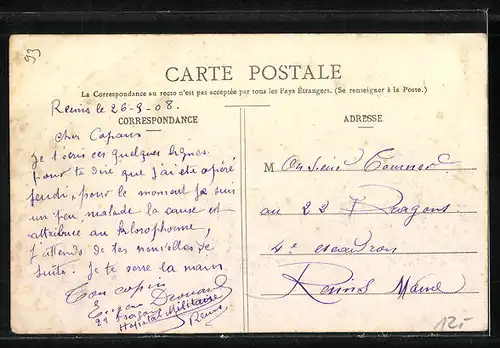 93
CARTE POSTALE
La Correspondance au recto n'est pas acceptée par tous les Pays Étrangers. (Se renseigner à la Poste.)
CORRESPONDANCE
Reims le 26-9-08.
Cher Copain
Je t'écris ces quelques lignes
pour te dire que j'ai été opéré
jeudi, pour le moment je suis
un peu malade la cause est
attribuée au klorophorme,
J'attends de tes nouvelles de
suite. Je te serre la main
Ton copin
Eugène Drouard
21 Dragons
Hopital Militaire
Reims.
ADRESSE
Monsieur
au 22 Dragons
4e escadron
Reims Marne
12.-